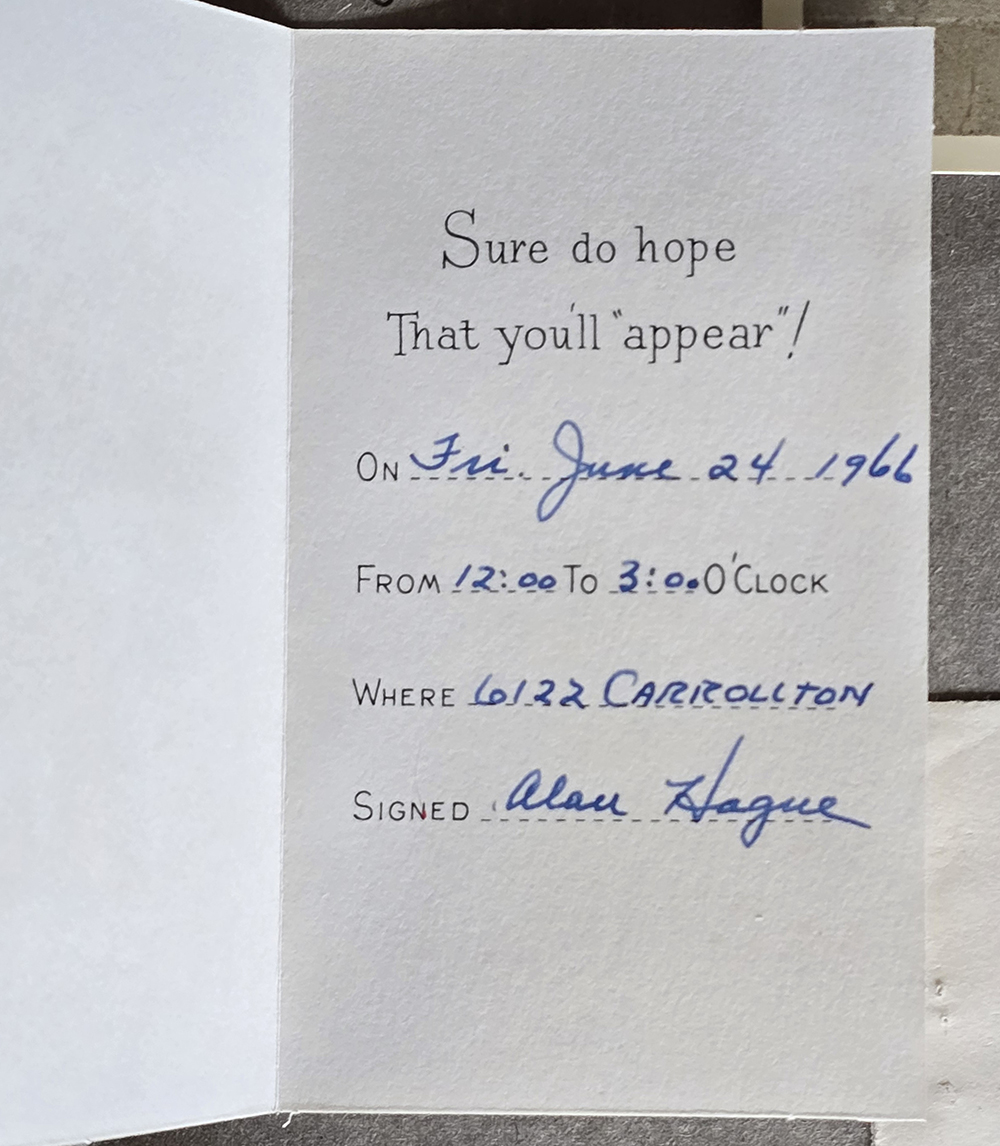 Sure do hope
That you'll "appear"!
ON Fri. June 24 1966
FROM 12:00 TO 3:00 O'CLOCK
WHERE 6122 CARROLLTON
SIGNED Alan Hague